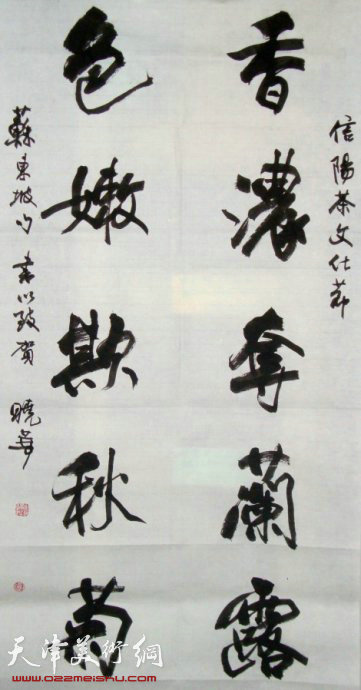 信陽茶文化节
香濃奪蘭露
色嫩欺秋菊
蘇東坡句 書以致賀 曉華
天津美術網
www.022meishu.com